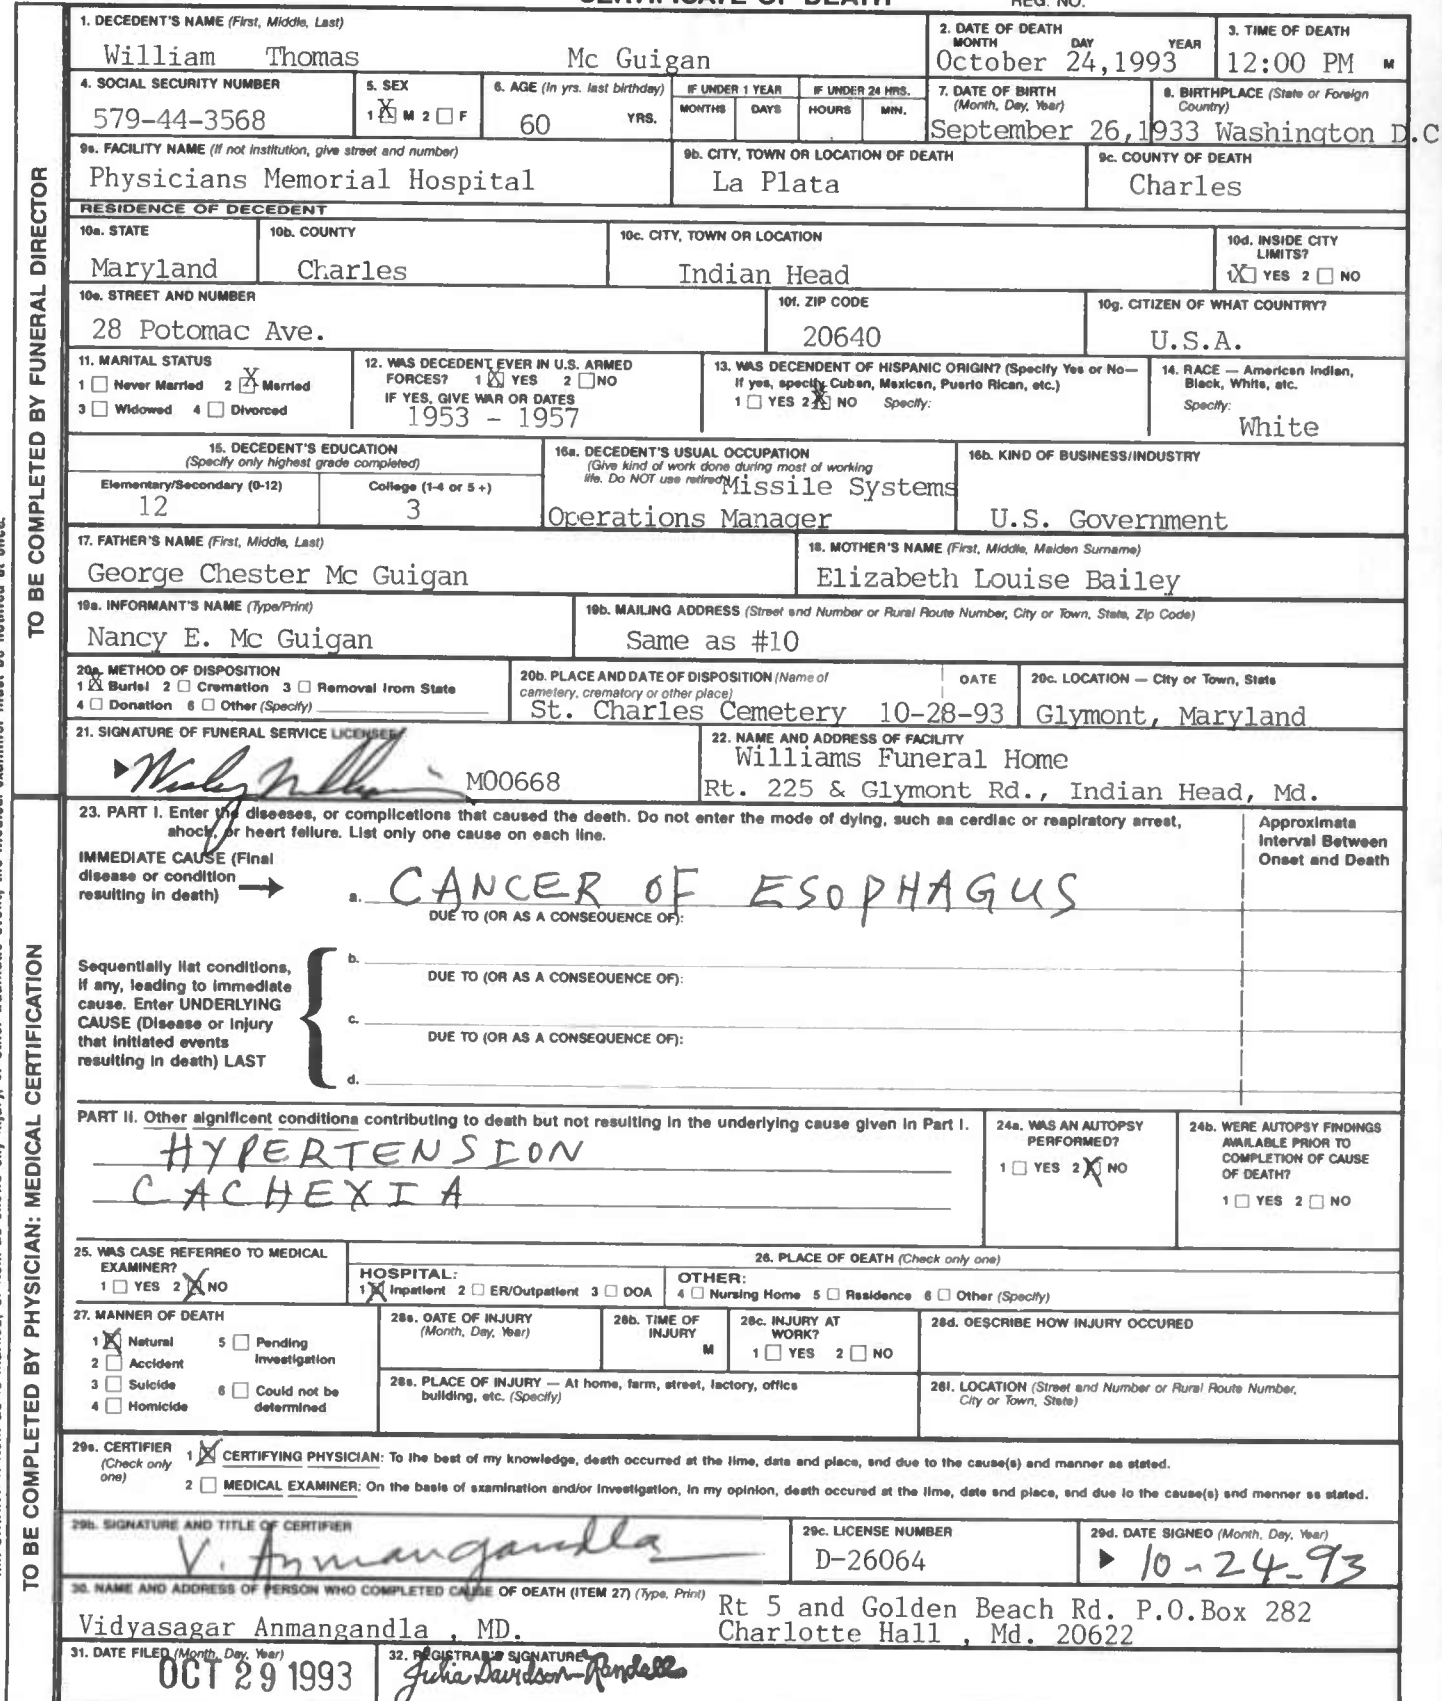 CERTIFICATE OF DEATH REG. NO.
1. DECEDENT'S NAME (First, Middle, Last)
William Thomas Mc Guigan
2. DATE OF DEATH
MONTH DAY YEAR
October 24,1993
3. TIME OF DEATH
12:00 PM M
4. SOCIAL SECURITY NUMBER
579-44-3568
5. SEX
1 X M 2 □ F
6. AGE (In yrs. last birthday)
60 YRS.
IF UNDER 1 YEAR
MONTHS DAYS
IF UNDER 24 HRS.
HOURS MIN.
7. DATE OF BIRTH
(Month, Day, Year)
September 26,1933
8. BIRTHPLACE (State or Foreign
Country)
Washington D.C
9a. FACILITY NAME (If not institution, give street and number)
Physicians Memorial Hospital
9b. CITY, TOWN OR LOCATION OF DEATH
La Plata
9c. COUNTY OF DEATH
Charles
RESIDENCE OF DECEDENT
10a. STATE
Maryland
10b. COUNTY
Charles
10c. CITY, TOWN OR LOCATION
Indian Head
10d. INSIDE CITY
LIMITS?
1 X YES 2 □ NO
10e. STREET AND NUMBER
28 Potomac Ave.
10f. ZIP CODE
20640
10g. CITIZEN OF WHAT COUNTRY?
U.S.A.
11. MARITAL STATUS
1 □ Never Married 2 X Married
3 □ Widowed 4 □ Divorced
12. WAS DECEDENT EVER IN U.S. ARMED
FORCES? 1 X YES 2 □ NO
IF YES, GIVE WAR OR DATES
1953 - 1957
13. WAS DECENDENT OF HISPANIC ORIGIN? (Specify Yes or No—
If yes, specify Cuban, Mexican, Puerto Rican, etc.)
1 □ YES 2 X NO Specify:
14. RACE — American Indian,
Black, White, etc.
Specify:
White
15. DECEDENT'S EDUCATION
(Specify only highest grade completed)
Elementary/Secondary (0-12)
12
College (1-4 or 5+)
3
16a. DECEDENT'S USUAL OCCUPATION
(Give kind of work done during most of working
life. Do NOT use retired) Missile Systems
Operations Manager
16b. KIND OF BUSINESS/INDUSTRY
U.S. Government
17. FATHER'S NAME (First, Middle, Last)
George Chester Mc Guigan
18. MOTHER'S NAME (First, Middle, Maiden Surname)
Elizabeth Louise Bailey
19a. INFORMANT'S NAME (Type/Print)
Nancy E. Mc Guigan
19b. MAILING ADDRESS (Street and Number or Rural Route Number, City or Town, State, Zip Code)
Same as #10
20a. METHOD OF DISPOSITION
1 X Burial 2 □ Cremation 3 □ Removal from State
4 □ Donation 6 □ Other (Specify)
20b. PLACE AND DATE OF DISPOSITION (Name of
cemetery, crematory or other place)
DATE
St. Charles Cemetery 10-28-93
20c. LOCATION — City or Town, State
Glymont, Maryland
21. SIGNATURE OF FUNERAL SERVICE LICENSEE
M00668
22. NAME AND ADDRESS OF FACILITY
Williams Funeral Home
Rt. 225 & Glymont Rd., Indian Head, Md.
TO BE COMPLETED BY FUNERAL DIRECTOR
23. PART I. Enter the diseases, or complications that caused the death. Do not enter the mode of dying, such as cardiac or respiratory arrest,
shock, or heart failure. List only one cause on each line.
Approximate
Interval Between
Onset and Death
IMMEDIATE CAUSE (Final
disease or condition
resulting in death) →
a. CANCER OF ESOPHAGUS
DUE TO (OR AS A CONSEQUENCE OF):
Sequentially list conditions,
if any, leading to immediate
cause. Enter UNDERLYING
CAUSE (Disease or Injury
that initiated events
resulting in death) LAST
b.
DUE TO (OR AS A CONSEQUENCE OF):
c.
DUE TO (OR AS A CONSEQUENCE OF):
d.
PART II. Other significant conditions contributing to death but not resulting in the underlying cause given in Part I.
HYPERTENSION
CACHEXIA
24a. WAS AN AUTOPSY
PERFORMED?
1 □ YES 2 X NO
24b. WERE AUTOPSY FINDINGS
AVAILABLE PRIOR TO
COMPLETION OF CAUSE
OF DEATH?
1 □ YES 2 □ NO
25. WAS CASE REFERRED TO MEDICAL
EXAMINER?
1 □ YES 2 X NO
26. PLACE OF DEATH (Check only one)
HOSPITAL:
1 X Inpatient 2 □ ER/Outpatient 3 □ DOA
OTHER:
4 □ Nursing Home 5 □ Residence 6 □ Other (Specify)
27. MANNER OF DEATH
1 X Natural 5 □ Pending
Investigation
2 □ Accident
3 □ Suicide 6 □ Could not be
determined
4 □ Homicide
28a. DATE OF INJURY
(Month, Day, Year)
28b. TIME OF
INJURY
M
28c. INJURY AT
WORK?
1 □ YES 2 □ NO
28d. DESCRIBE HOW INJURY OCCURED
28e. PLACE OF INJURY — At home, farm, street, factory, office
building, etc. (Specify)
28f. LOCATION (Street and Number or Rural Route Number,
City or Town, State)
29a. CERTIFIER
(Check only
one)
1 X CERTIFYING PHYSICIAN: To the best of my knowledge, death occurred at the time, date and place, and due to the cause(s) and manner as stated.
2 □ MEDICAL EXAMINER: On the basis of examination and/or investigation, in my opinion, death occured at the time, date and place, and due to the cause(s) and manner as stated.
29b. SIGNATURE AND TITLE OF CERTIFIER
V. Anmangandla
29c. LICENSE NUMBER
D-26064
29d. DATE SIGNED (Month, Day, Year)
10-24-93
30. NAME AND ADDRESS OF PERSON WHO COMPLETED CAUSE OF DEATH (ITEM 27) (Type, Print)
Vidyasagar Anmangandla , MD.
Rt 5 and Golden Beach Rd. P.O.Box 282
Charlotte Hall , Md. 20622
31. DATE FILED (Month, Day, Year)
OCT 29 1993
32. REGISTRAR'S SIGNATURE
Julia Davidson-Randall
TO BE COMPLETED BY PHYSICIAN: MEDICAL CERTIFICATION